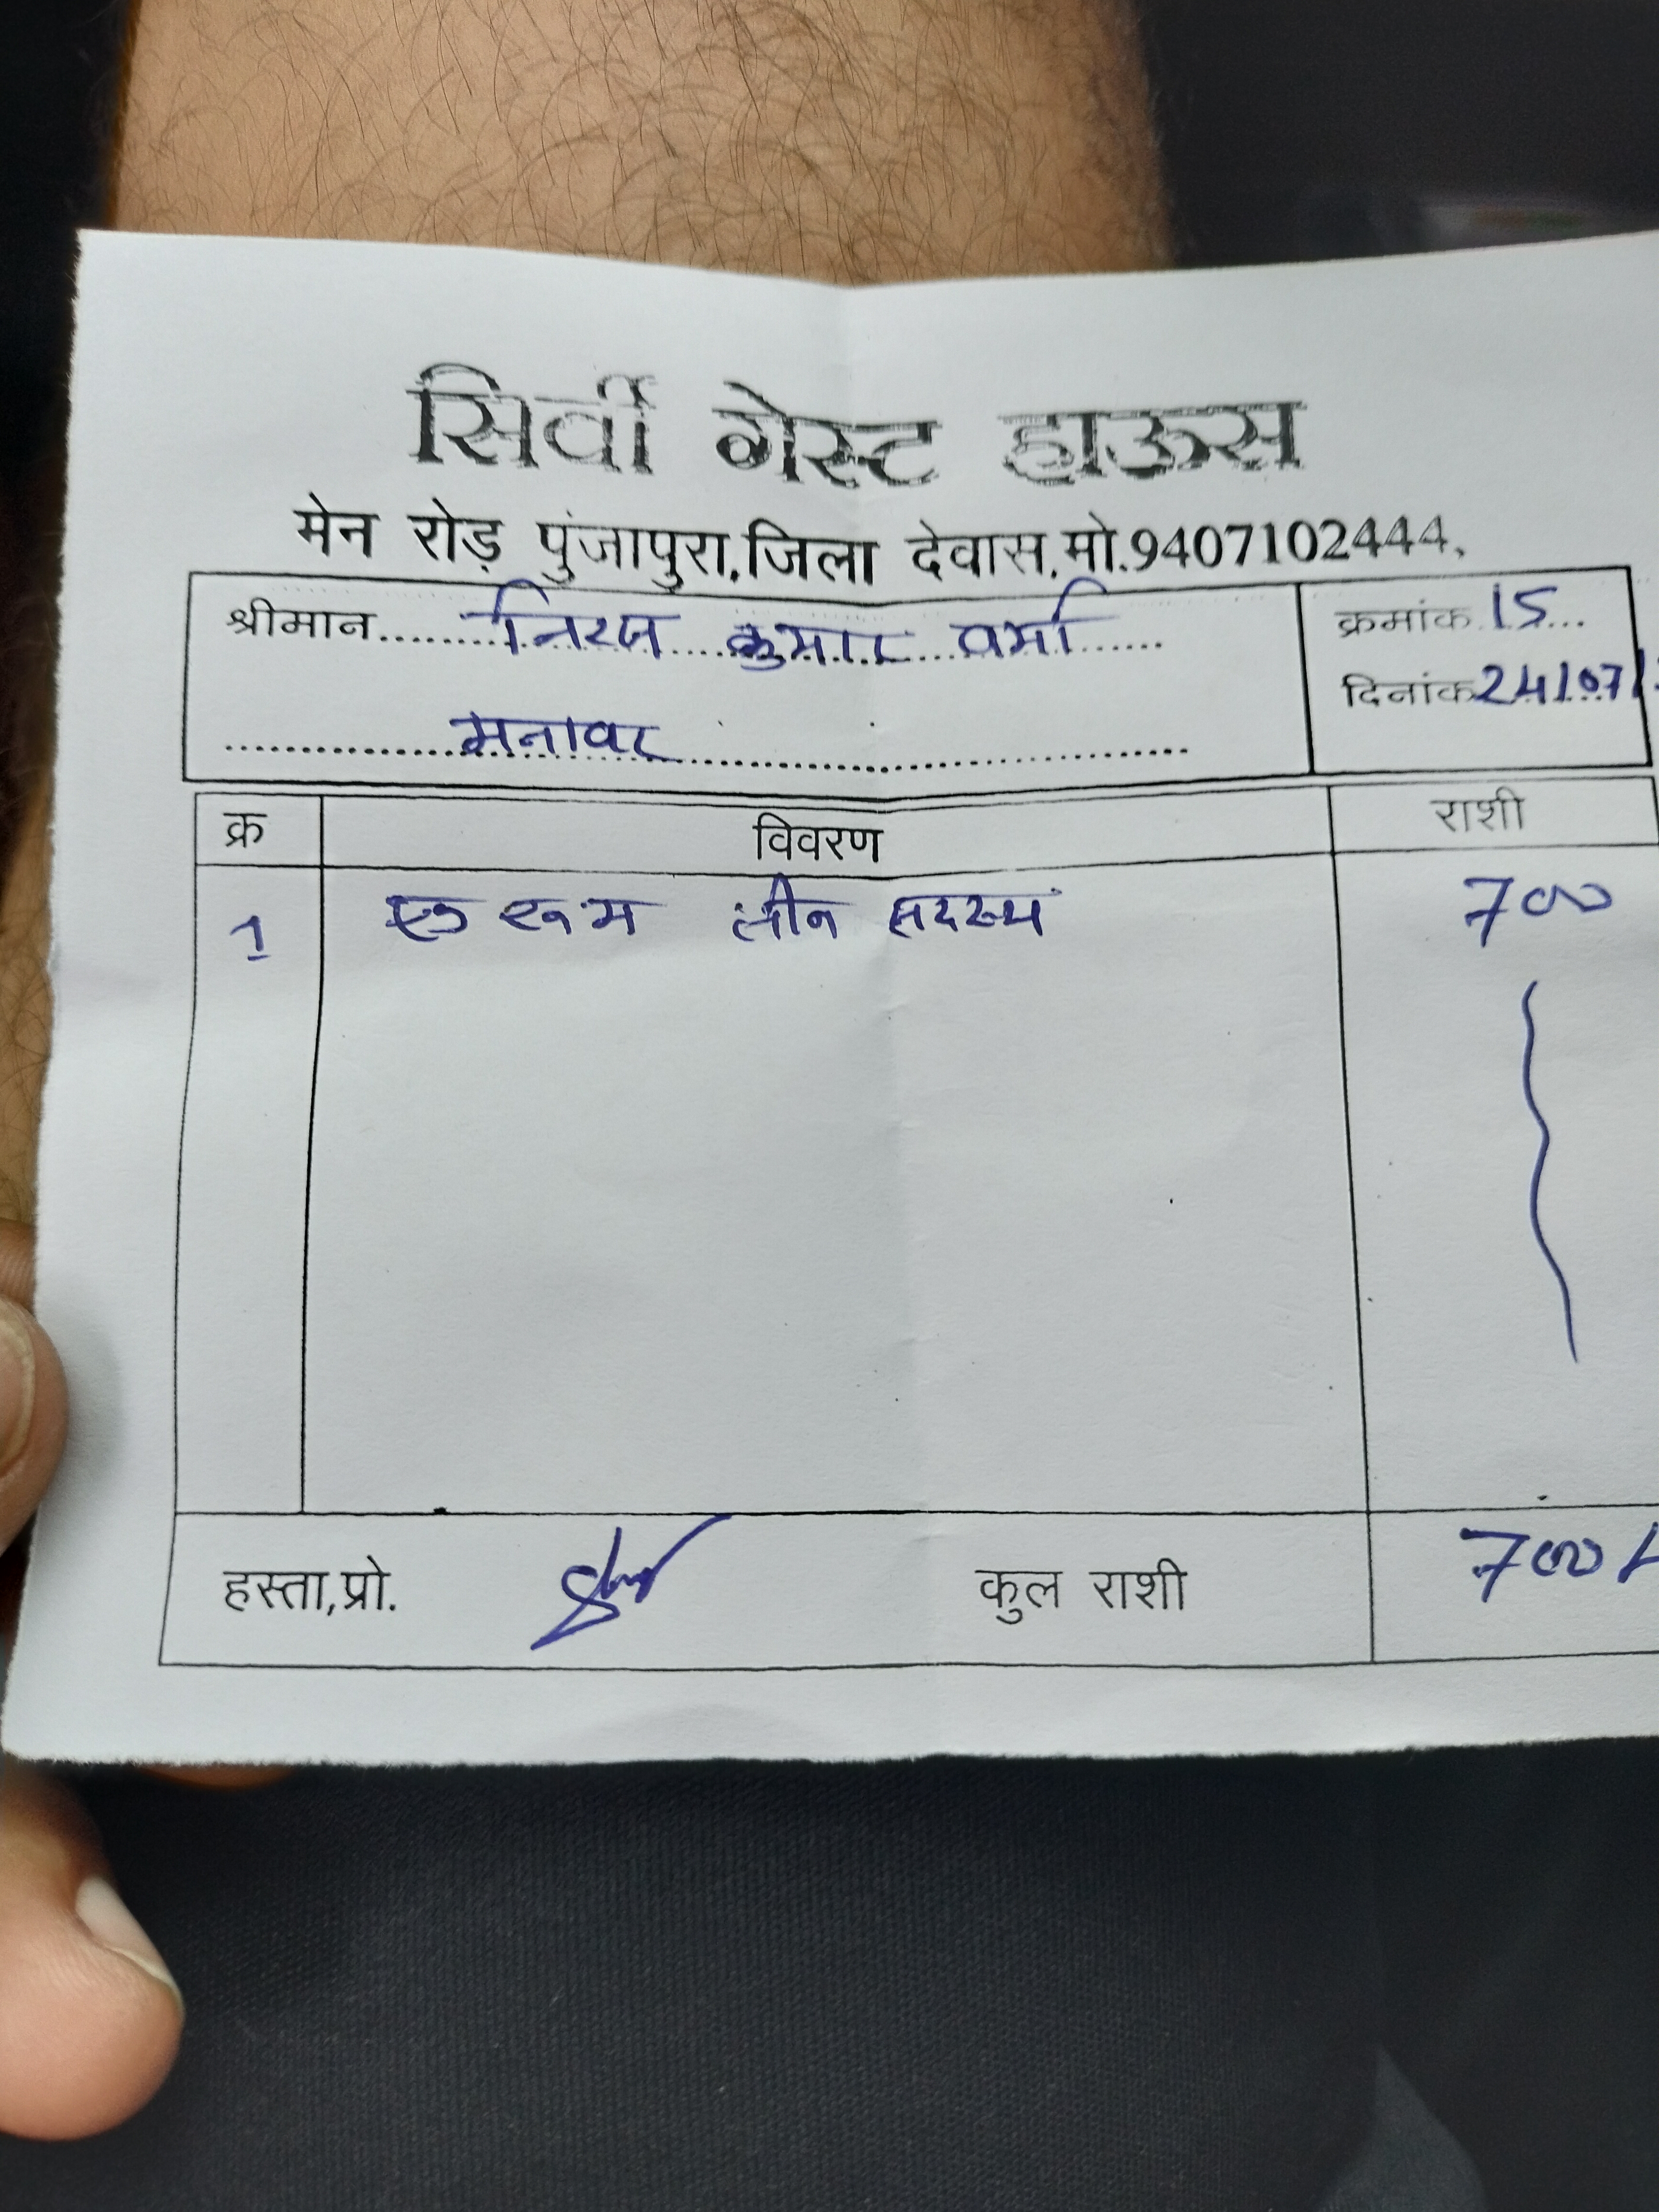 सिर्वी गेस्ट हाऊस
मेन रोड़ पुंजापुरा,जिला देवास,मो.9407102444,
श्रीमान.......निरज कुमार वर्मा......
क्रमांक.15...
मनावर
दिनांक 24/07/
क्र विवरण राशी
1 एक रूम तीन सदस्य 700
हस्ता,प्रो. कुल राशी 700/